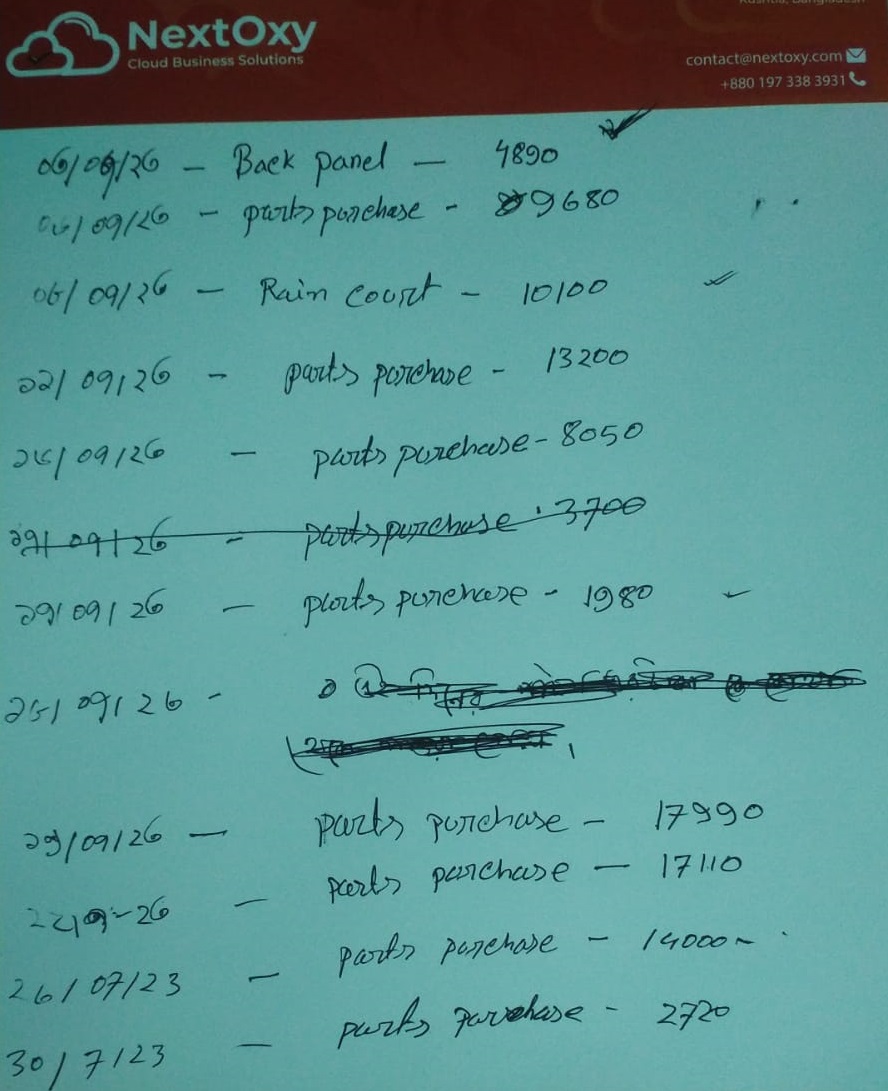 NextOxy
Cloud Business Solutions
contact@nextoxy.com
+880 197 338 3931
06/09/26 — Back panel — 4890
06/09/26 - parts purchase - 9680
06/09/26 — Rain Court — 10100
22/09/26 - parts purchase - 13200
/09/26 — parts purchase - 8050
29/09/26 - parts purchase - 3700
29/09/26 — parts purchase - 1980
/09/26 -
29/09/26 — parts purchase — 17990
-26 — parts purchase — 17110
26/07/23 — parts purchase — 14000
30/7/23 — parts purchase - 2720